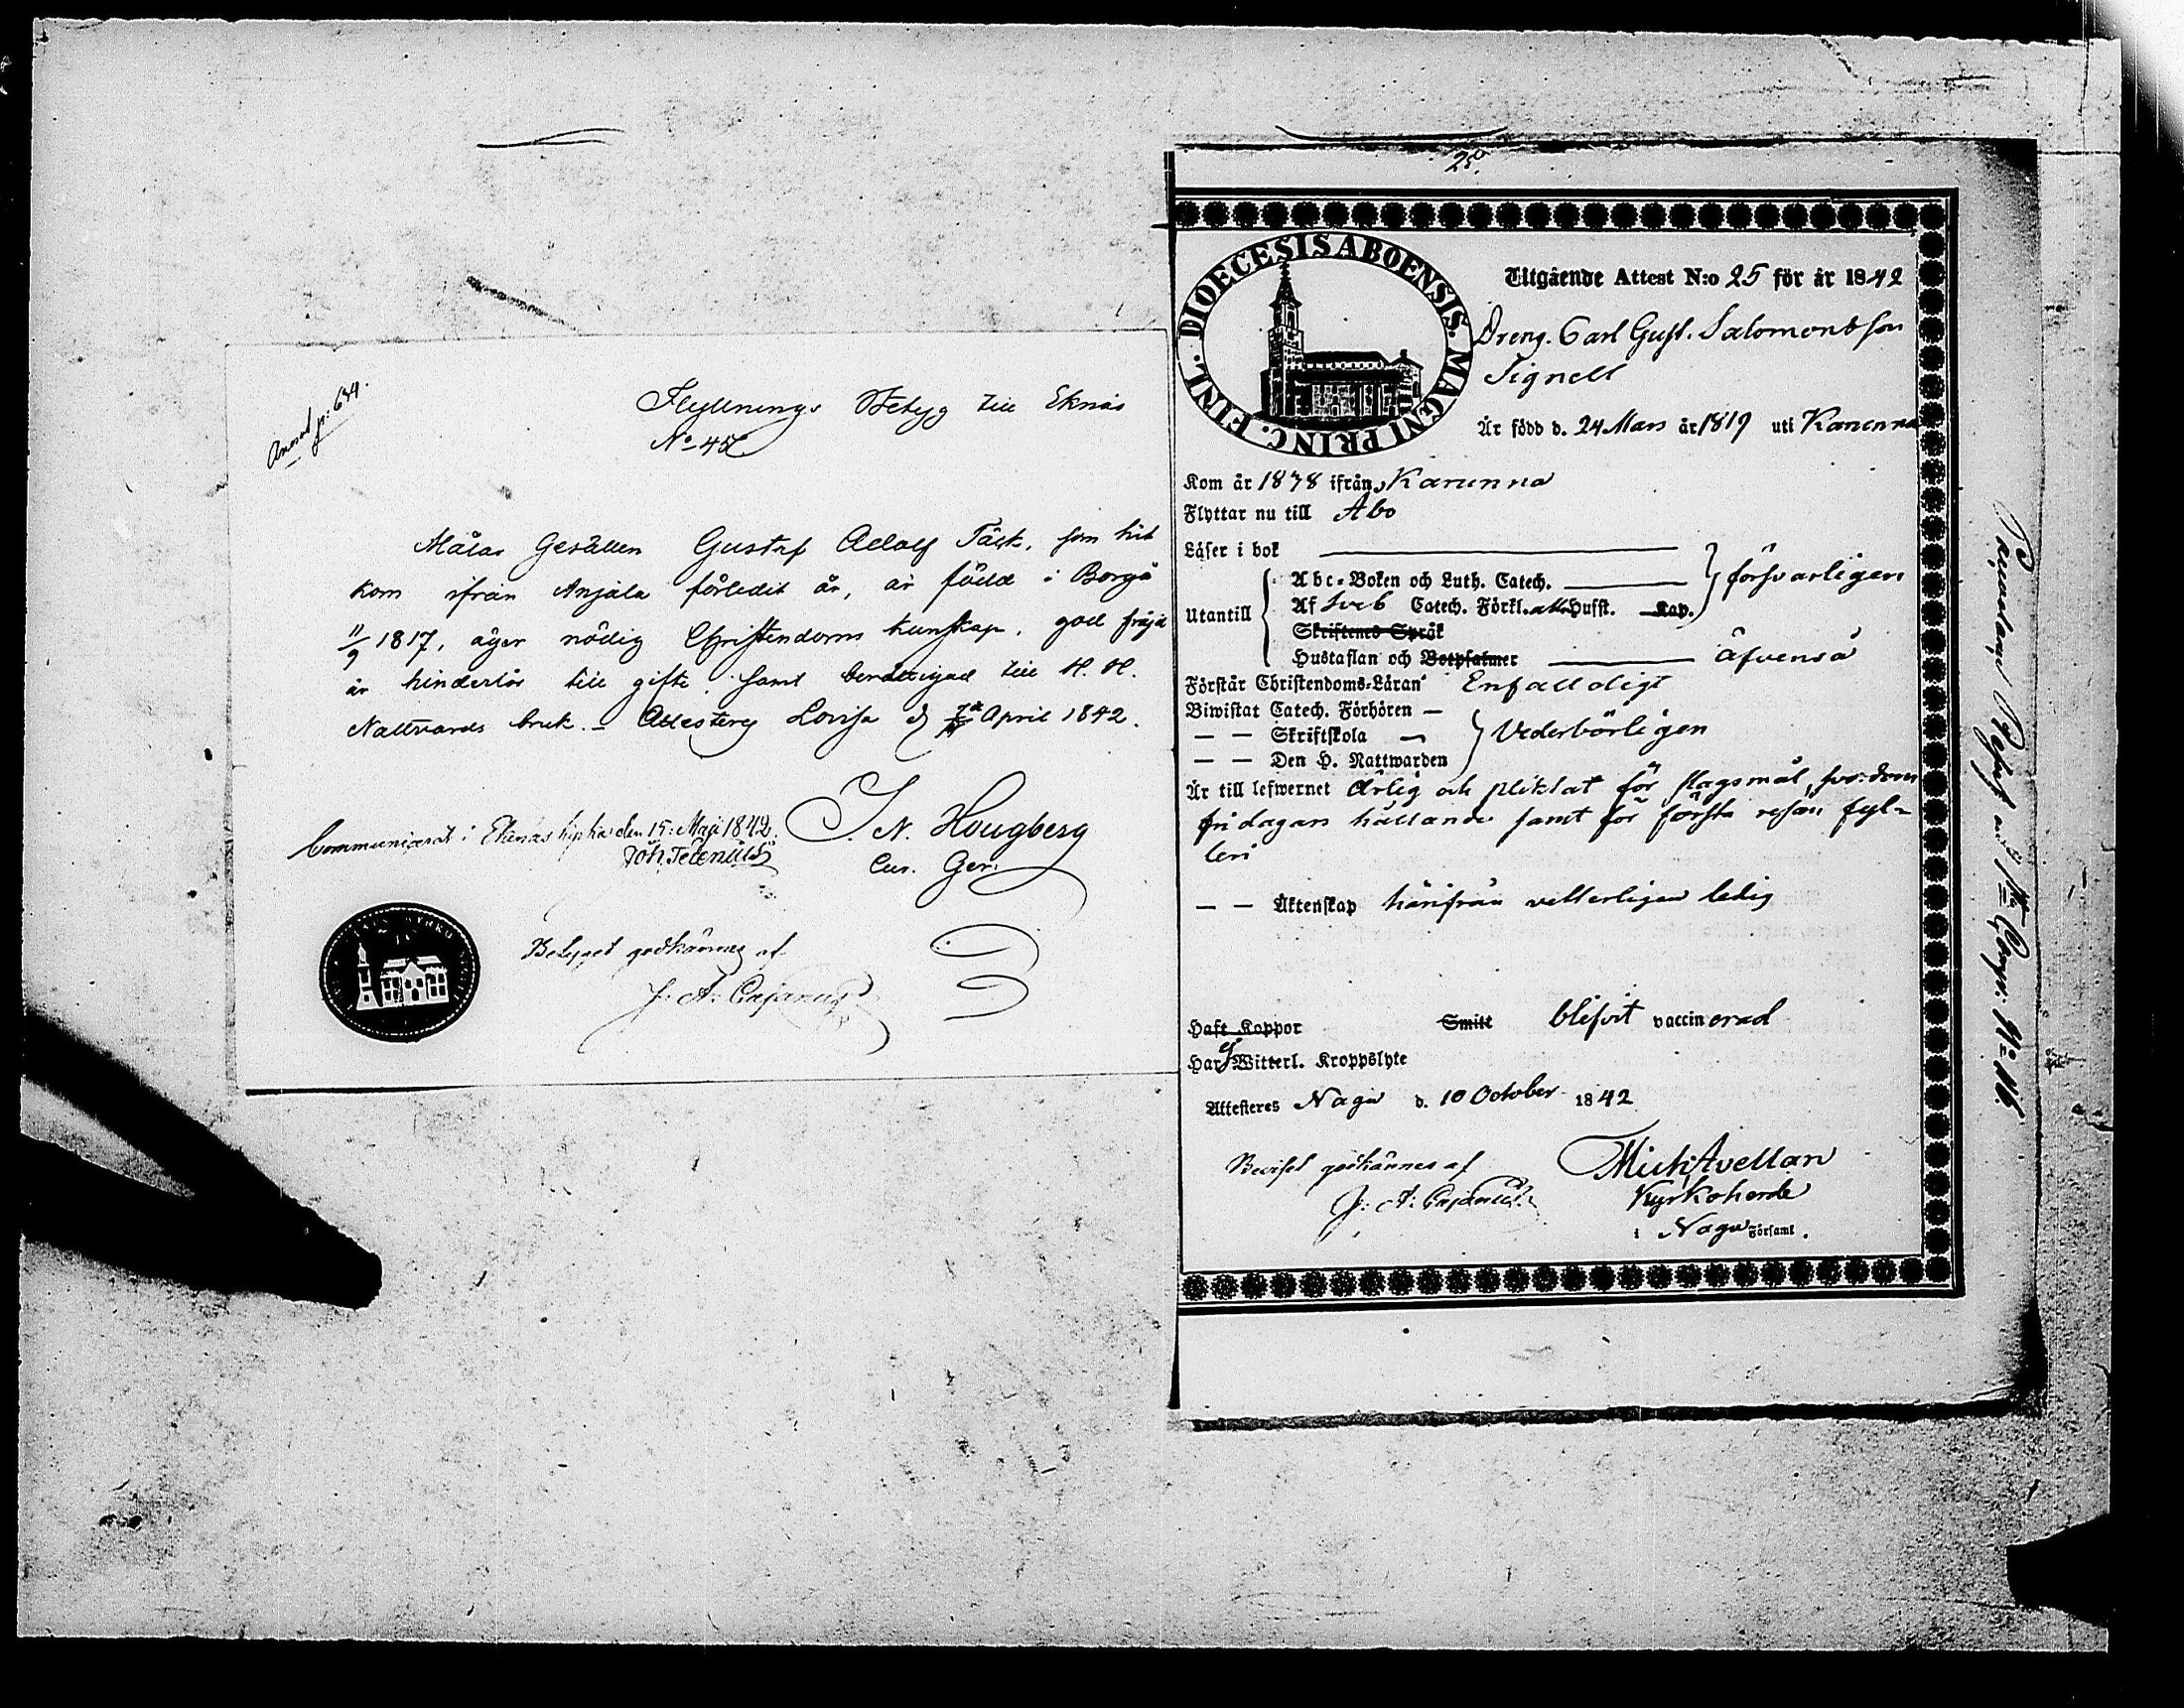 Flyttnings Betyg till Eknäs
No 45
Målar Gesällen Gustaf Adolf Täck, som hit
kom ifrån Anjala förledit år, är född i Borgå
11/9 1817, äger nödig Christendoms kunskap, god fräjd
är hinderlös till gifte, samt berättigad till H. H.
Nattvards bruk. Attesterar Lovisa d April 1842.
J. N. Hougberg
Cur. Ger.
Communicerat i Ekenäs kyrka den 15: Maji 1842.
Betyget godkännes af
J: A: Cajanus
25
DIOECESIS ABOENSIS. MAGNI PRINC. FINL.
Utgående Attest N:o 25 för år 1842
Dreng. Carl Gust. Salomonsson
Signell
Är född d. 24 Mars år 1819 uti Karunna
Kom år 1838 ifrån Karunna
Flyttar nu till Åbo
Läser i bok
Utantill
Abc-Boken och Luth. Catech.
försvarligen
Af Sveb Catech. Förkl. Hufst. Kap.
Skriftenes Språk
Hustaflan och Botpsalmer äfvenså
Förstår Christendoms-Läran Enfalldigt
Biwistat Catech. Förhören —
— — Skriftskola — Vederbörligen
— — Den H. Nattwarden
Är till lefwernet Ärlig och pliktat för slagsmål,
fridagars hållande samt för första resan fyl-
leri
— — Äktenskap härifrån vetterligen ledig
Haft Koppor Smitt blifvit vaccinerad
Har ej Witterl. Kroppslyte
Attesteres Nagu d. 10 October 1842
Mich Avellan
Kyrkoherde
i Nagu Församl.
Beviset godkännes af
J: A: Cajanus